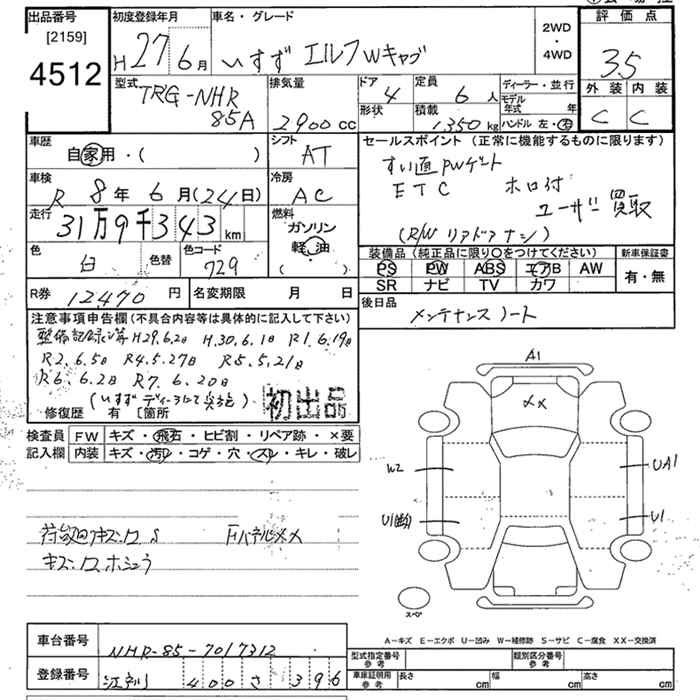 出品番号
[2159]
4512
初度登録年月
H 27年 6月
車名・グレード
いすゞ エルフWキャブ
2WD
・
4WD
評価点
3.5
外装 内装
C C
型式
TRG-NHR
85A
排気量
2900cc
ドア
4
定員
6人
形状
積載
1350kg
ディーラー・並行
モデル年式 年
ハンドル 左・右
車歴
自家用・( )
シフト
AT
セールスポイント(正常に機能するものに限ります)
すい直PWゲート
ETC ホロ付
ユーザー買取
(R/W リアドアナシ)
車検
R 8年 6月(24日)
冷房
AC
走行
31万9千343km
燃料
ガソリン
軽油
( )
色
白
色替
色コード
729
装備品(純正品に限り○をつけてください)
PS PW ABS エアB AW
SR ナビ TV カワ
新車保証書
有・無
R券 12470円
名変期限 月 日
後日品
メンテナンスノート
注意事項申告欄(不具合内容等は具体的に記入して下さい)
整備記録簿 H29.6.2日 H.30.6.1日 R1.6.19日
R2.6.5日 R4.5.27日 R5.5.21日
R6.6.2日 R7.6.20日
(いすゞディーラーにて実施)
初出品
修復歴 有 [箇所
検査員
記入欄
FW キズ・飛石・ヒビ割・リペア跡・×要
内装 キズ・汚れ・コゲ・穴・スレ・キレ・破レ
キズ・凹ホシュウ
FパネルXX
A1
XX
W2
UA1
U1
スペア
A-キズ E-エクボ U-凹み W-補修跡 S-サビ C-腐食 XX-交換済
車台番号
NHR-85-7017312
登録番号
江戸川 400 さ 396
型式指定番号
参考
類別区分番号
参考
車庫証明用
参考
長さ cm 幅 cm 高さ cm